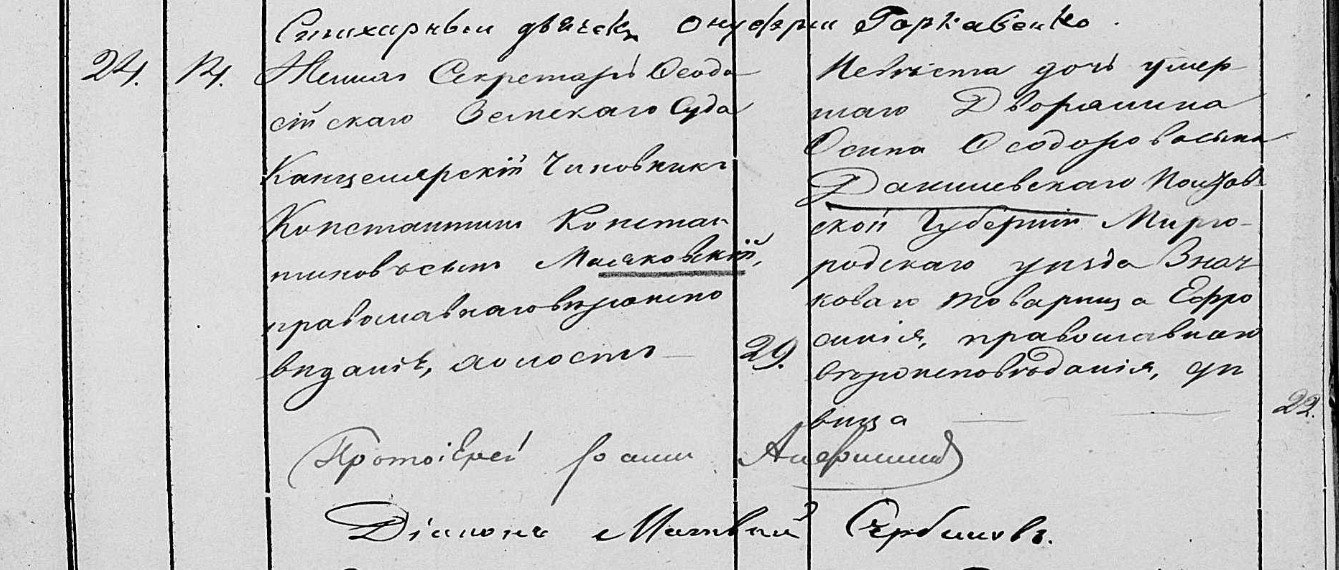 Стихарный дьячекъ Онуфрій Горкавенко.
24. 14. Женихъ Секретарь Ѳеодо
сійскаго Земскаго Суда
Канцелярскій Чиновникъ
Константинъ Констан
тиновъ сынъ Маяковскій,
православнаго вѣроиспо
вѣданія, холостъ
29.
Невѣста дочь умер
шаго Дворянина
Осипа Ѳеодорова сына
Данилевскаго Полтав
ской Губерніи Мирго-
родскаго уѣзда Знач
коваго товарища Ефро
синія, православнаго
вѣроисповѣданія, дѣ
вица
22.
Протоіерей Іоаннъ
Діаконъ Матвѣй Сербиновъ.